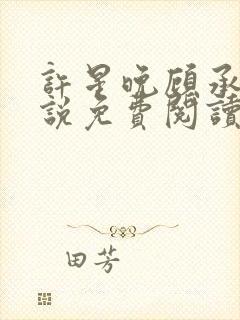 許星晚顾承
說免費閱讀
田芳